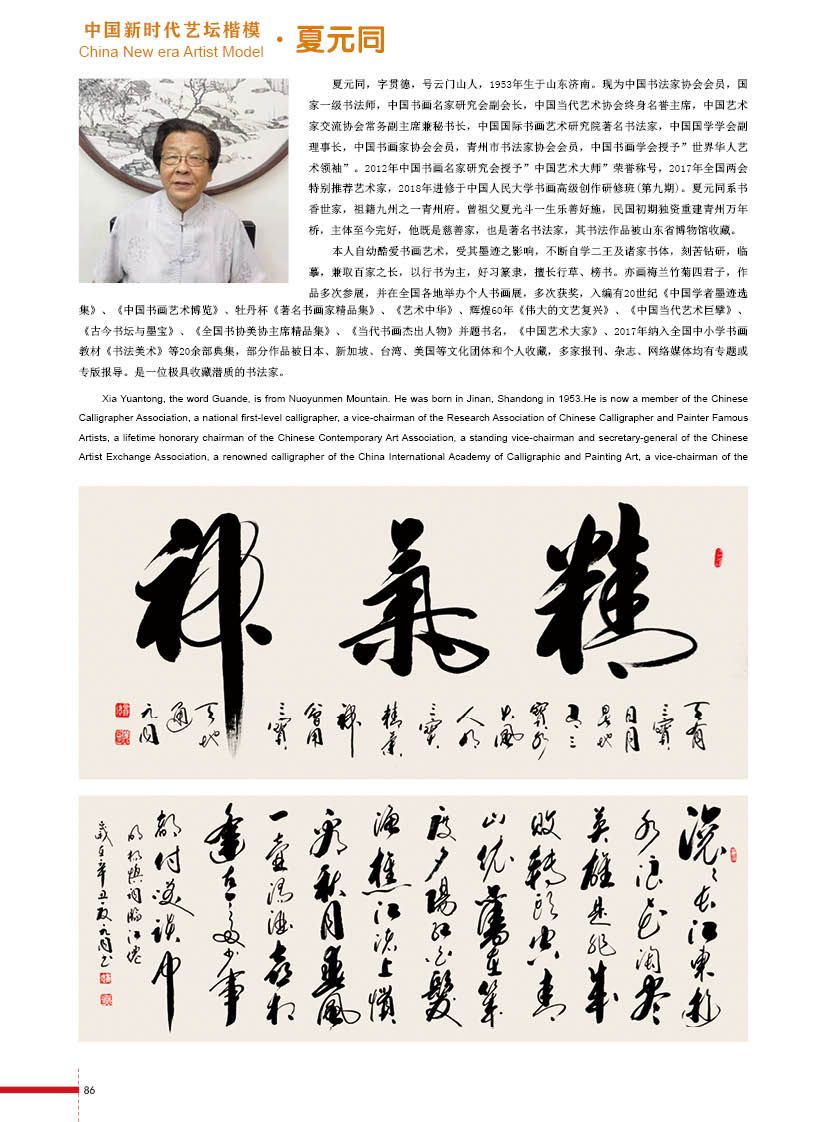 中国新时代艺坛楷模
China New era Artist Model
·夏元同
夏元同，字贯德，号云门山人，1953年生于山东济南。现为中国书法家协会会员，国
家一级书法师，中国书画名家研究会副会长，中国当代艺术协会终身名誉主席，中国艺术
家交流协会常务副主席兼秘书长，中国国际书画艺术研究院著名书法家，中国国学学会副
理事长，中国书画家协会会员，青州市书法家协会会员，中国书画学会授予”世界华人艺
术领袖”。2012年中国书画名家研究会授予”中国艺术大师”荣誉称号，2017年全国两会
特别推荐艺术家，2018年进修于中国人民大学书画高级创作研修班(第九期)。夏元同系书
香世家，祖籍九州之一青州府。曾祖父夏光斗一生乐善好施，民国初期独资重建青州万年
桥，主体至今完好，他既是慈善家，也是著名书法家，其书法作品被山东省博物馆收藏。
本人自幼酷爱书画艺术，受其墨迹之影响，不断自学二王及诸家书体，刻苦钻研，临
摹，兼取百家之长，以行书为主，好习篆隶，擅长行草、榜书。亦画梅兰竹菊四君子，作
品多次参展，并在全国各地举办个人书画展，多次获奖，入编有20世纪《中国学者墨迹选
集》、《中国书画艺术博览》、牡丹杯《著名书画家精品集》、《艺术中华》、辉煌60年《伟大的文艺复兴》、《中国当代艺术巨擘》、
《古今书坛与墨宝》、《全国书协美协主席精品集》、《当代书画杰出人物》并题书名，《中国艺术大家》、2017年纳入全国中小学书画
教材《书法美术》等20余部典集，部分作品被日本、新加坡、台湾、美国等文化团体和个人收藏，多家报刊、杂志、网络媒体均有专题或
专版报导。是一位极具收藏潜质的书法家。
Xia Yuantong, the word Guande, is from Nuoyunmen Mountain. He was born in Jinan, Shandong in 1953.He is now a member of the Chinese
Calligrapher Association, a national first-level calligrapher, a vice-chairman of the Research Association of Chinese Calligrapher and Painter Famous
Artists, a lifetime honorary chairman of the Chinese Contemporary Art Association, a standing vice-chairman and secretary-general of the Chinese
Artist Exchange Association, a renowned calligrapher of the China International Academy of Calligraphic and Painting Art, a vice-chairman of the
精氣神
天有
三寶
日月
星地
有三
寶水
火風
人有
三寶
精氣
神
善用
三寶
天地
通
元同
滚滚长江東逝
水浪花淘尽
英雄是非成
败轉頭空青
山依舊在几
度夕陽红白髮
渔樵江渚上惯
看秋月春風
一壶濁酒喜相
逢古今多少事
都付笑谈中
明杨慎词临江仙
歲在辛丑夏元同书
86